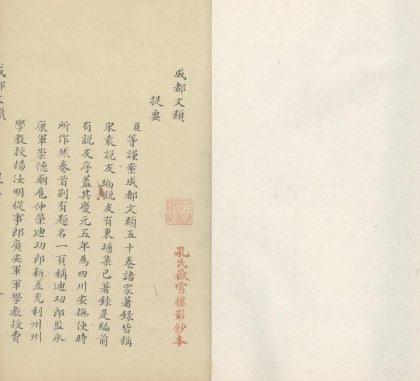 成都文類
孔氏嶽雪樓影鈔本
提要
臣等謹案成都文類五十卷諸家著錄皆稱
宋袁說友編說友有東塘集已著錄是編前
有說友序蓋其慶元五年為四川安撫使時
所作然卷首別有題名一頁稱迪功郎監永
康軍崇德廟扈仲榮迪功郎新差充利州州
學教授楊汝明從事郎廣安軍軍學教授費
成都文類